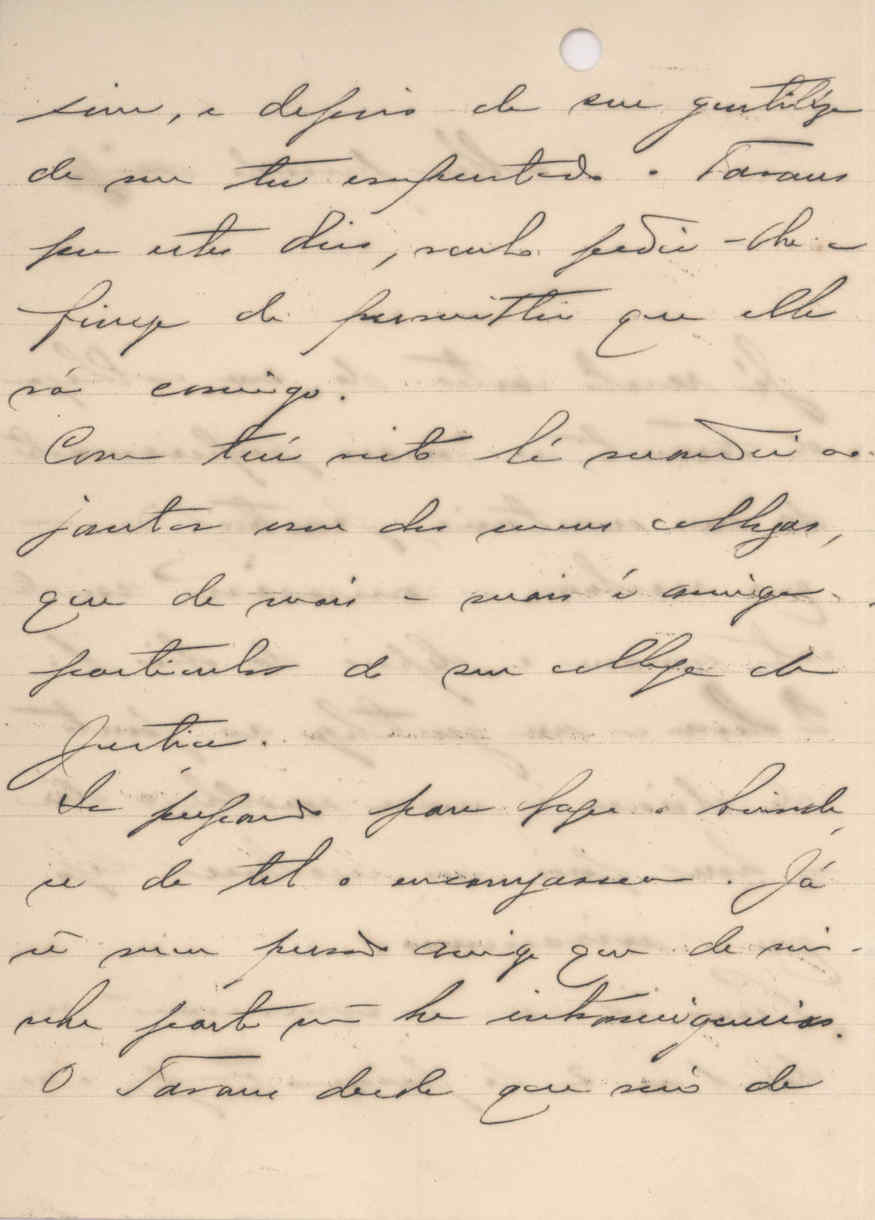 sim, e depois de sua gentileza
de me ter emprestado o Tavares
por estes dias, venho pedir-lhe a
fineza de permittir que elle
vá comigo.
Com tuú visto lá mandei ao
jantar um dos meus collegas,
que de mais a mais é amigo
particular do seu collega da
Justiça.
preparando para fazer o brinde,
se de tal o encarregassem. Já
vê meu presado amigo que de mi-
nha parte não ha intransigencias.
O Tavares desde que não de